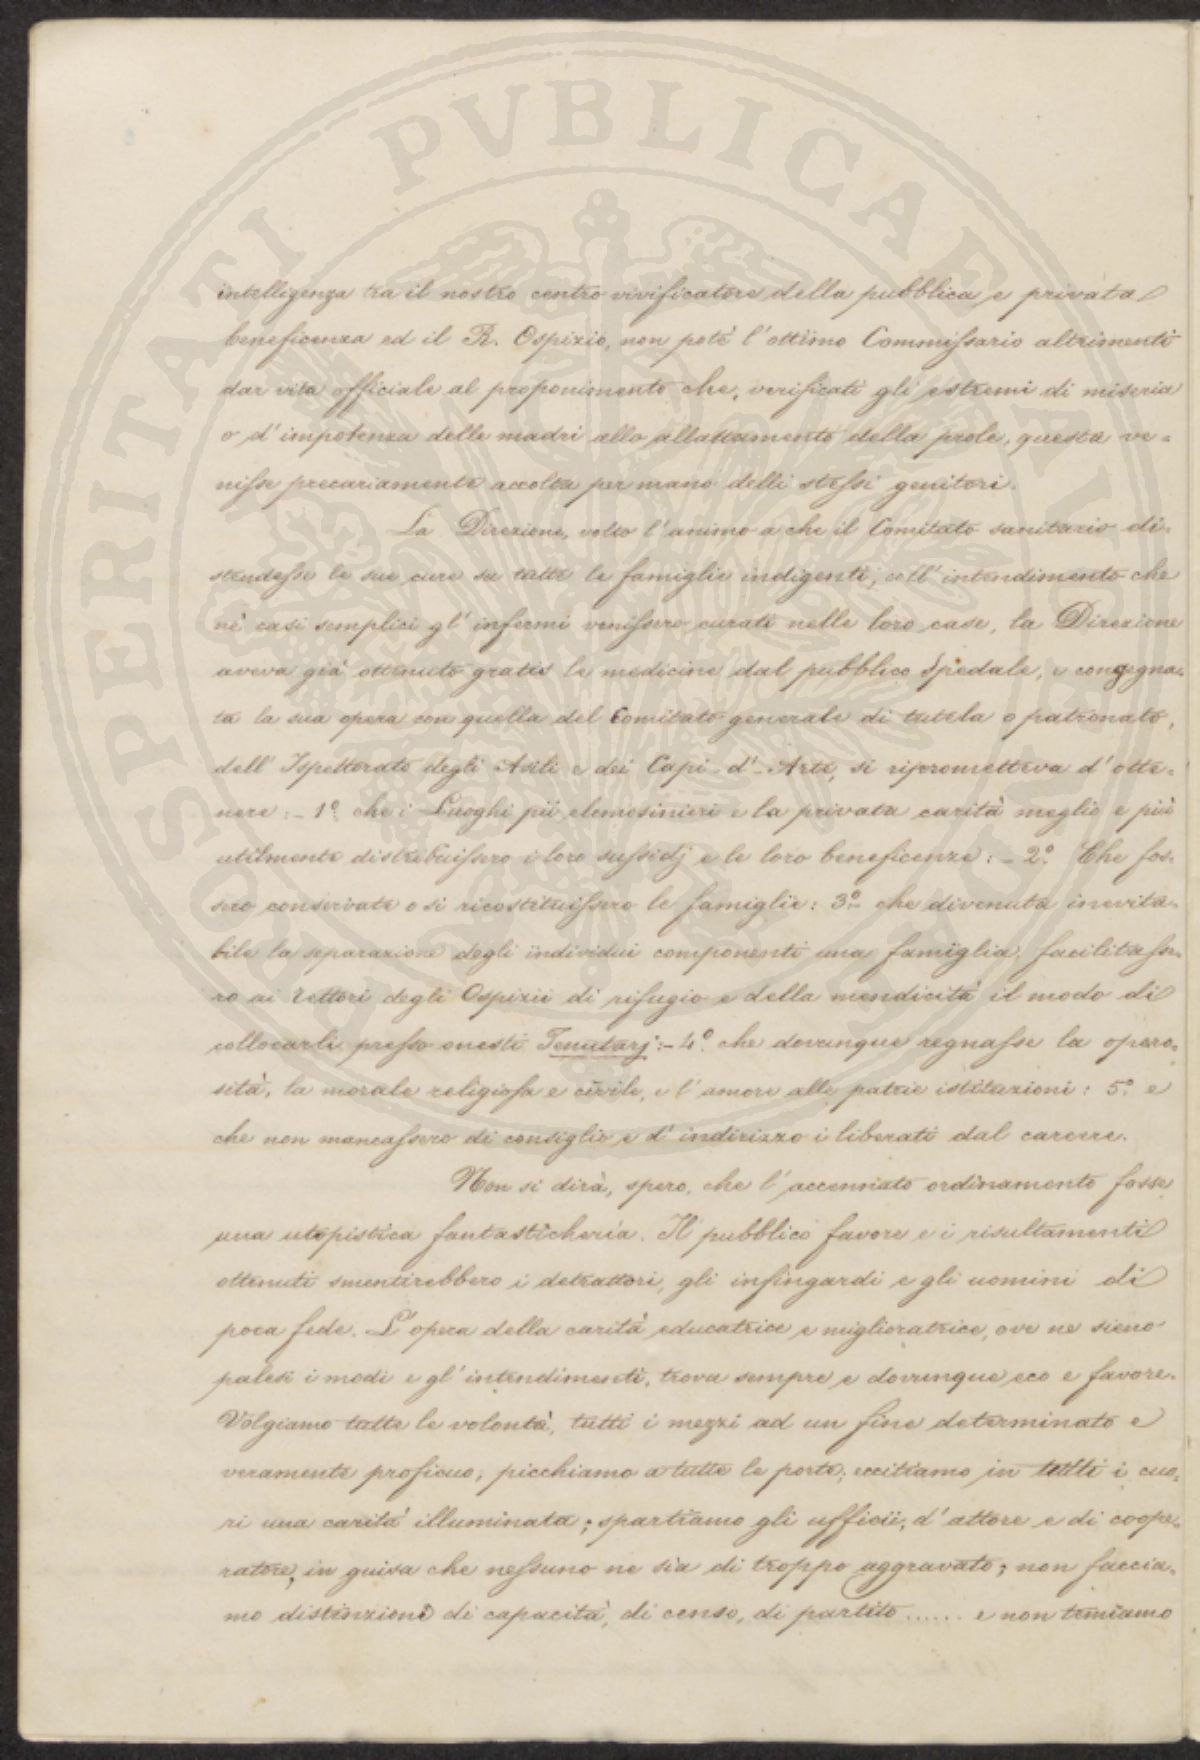 intelligenza tra il nostro centro vivificatore della pubblica e privata
beneficenza ed il R. Ospizio, non potè l'ottimo Commissario altrimenti
dar vita officiale al proponimento che, verificati gli estremi di miseria
o d'impotenza delle madri allo allattamento della prole, questa ve=
nisse precariamente accolta per mano delli stessi genitori.
La Direzione, volto l'animo a che il Comitato sanitario di=
stendesse le sue cure su tutte le famiglie indigenti, coll'intendimento che
nè casi semplici gl'infermi venissero curati nelle loro case, la Direzione
aveva già ottenuto gratis le medicine dal pubblico Spedale, e congegna=
ta la sua opera con quella del Comitato generale di tutela o patronato,
dell'Ispettorato degli Asili e dei Capi-d'-Arte, si riprometteva d'otte=
nere: - 1.º che i Luoghi pii elemosinieri e la privata carità meglio e più
utilmente distribuissero i loro sussidj e le loro beneficenze: - 2.º Che fos=
sero conservate o si ricostituissero le famiglie: 3.º - che divenuta inevita=
bile la separazione degli individui componenti una famiglia, facilitasse=
ro ai rettori degli Ospizii di rifugio e della mendicità il modo di
collocarli presso onesti Tenutarj: - 4.º che dovunque regnasse la opero=
sità, la morale religiosa e civile, e l'amore alle patrie istituzioni: 5.º e
che non mancassero di consiglio e d'indirizzo i liberati dal carcere.
Non si dirà, spero, che l'accennato ordinamento fosse
una utopistica fantasticheria. Il pubblico favore e i risultamenti
ottenuti smentirebbero i detrattori, gli infingardi e gli uomini di
poca fede. L'opera della carità educatrice e miglioratrice, ove ne sieno
palesi i modi e gl'intendimenti, trova sempre e dovunque eco e favore.
Volgiamo tutte le volontà, tutti i mezzi ad un fine determinato e
veramente proficuo, picchiamo a tutte le porte; eccitiamo in tutti i cuo=
ri una carità illuminata; spartiamo gli ufficii, d'attore e di coope=
ratore, in guisa che nessuno ne sia di troppo aggravato; non faccia=
mo distinzione di capacità, di censo, di partito ...... e non temiamo
SOSPERITATI PVBLICAE